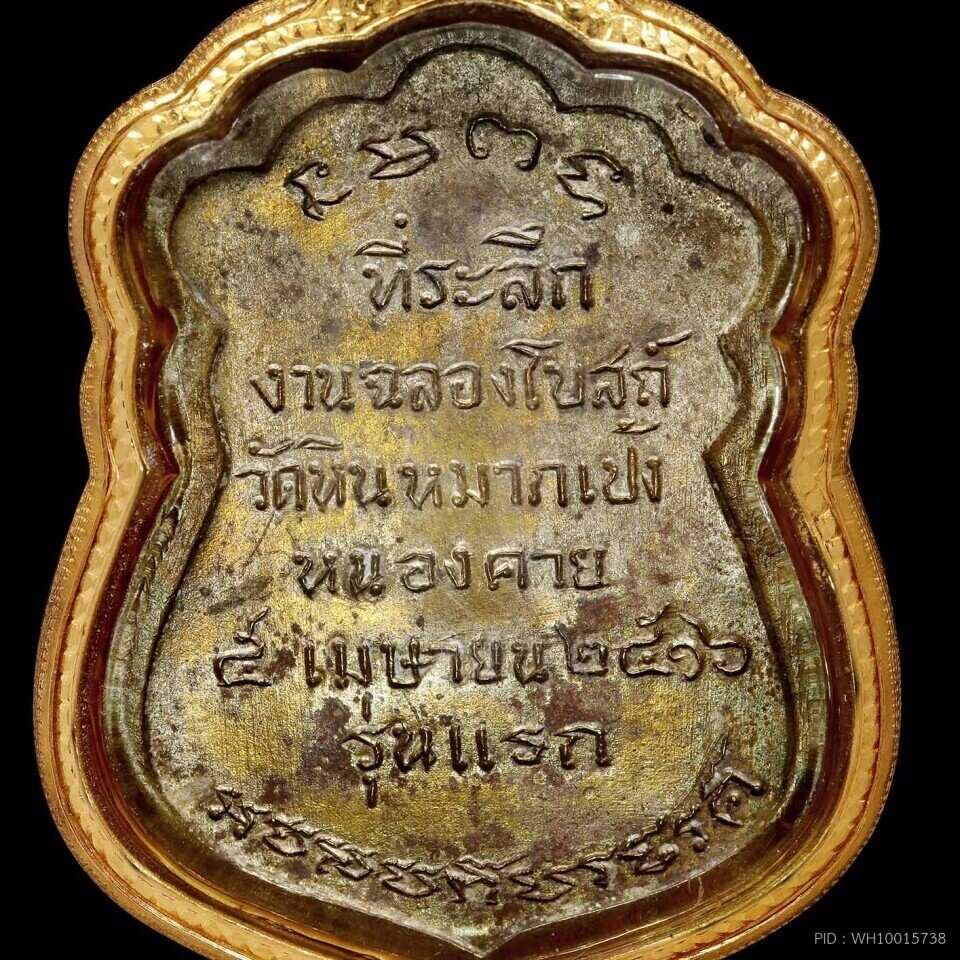 ที่ระลึก
งานฉลองโบสถ์
วัดหินหมากเป้ง
หนองคาย
๕ เมษายน ๒๕๑๖
รุ่นแรก
PID : WH10015738